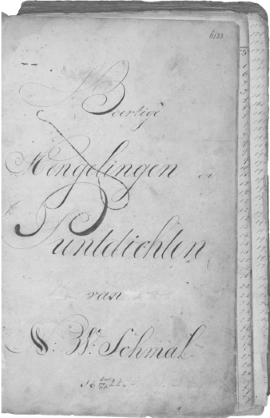 Boertige
Mengelingen
Puntdichten
van
W. Schmal